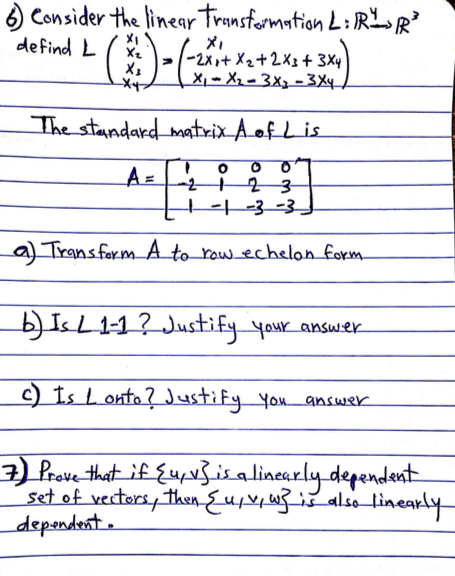 6) Consider the linear Transformation L: ℝ⁴→ℝ³
defind L (x₁ x₂ x₃ x₄) = (x₁
-2x₁+x₂+2x₃+3x₄
x₁-x₂-3x₃-3x₄)
The standard matrix A of L is
A = [1 0 0 0
-2 1 2 3
1 -1 -3 -3]
a) Transform A to row echelon form
b) Is L 1-1? Justify your answer
c) Is L onto? Justify you answer
7) Prove that if {u,v} is a linearly dependent
set of vectors, then {u,v,w} is also linearly
dependent.